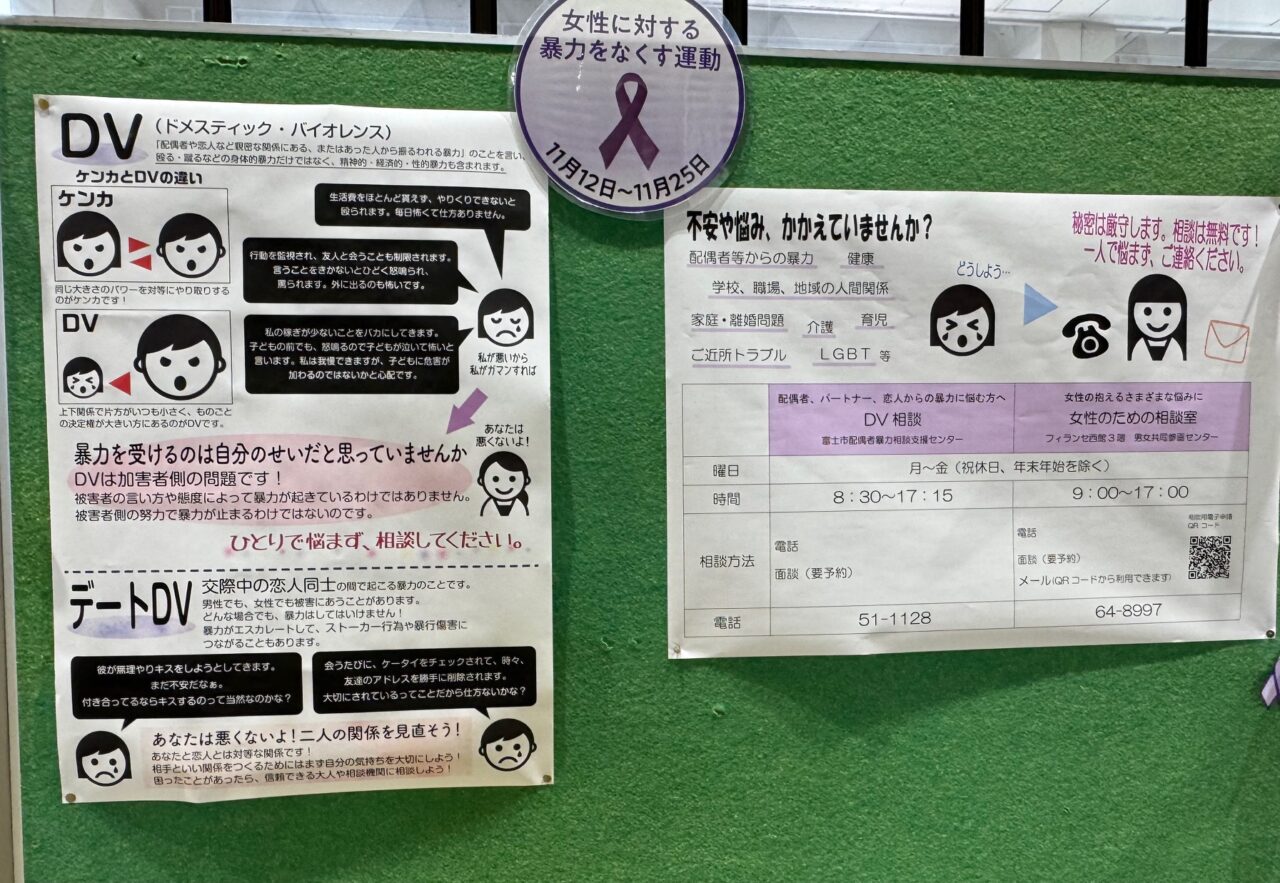 女性に対する
暴力をなくす運動
11月12日～11月25日
DV（ドメスティック・バイオレンス）
「配偶者や恋人など親密な関係にある、またはあった人から振るわれる暴力」のことを言い、
殴る・蹴るなどの身体的暴力だけではなく、精神的・経済的・性的暴力も含まれます。
ケンカとDVの違い
ケンカ
同じ大きさのパワーを対等にやり取りする
のがケンカです！
DV
上下関係で片方がいつも小さく、ものごと
の決定権が大きい方にあるのがDVです。
生活費をほとんど貰えず、やりくりできないと
殴られます。毎日怖くて仕方ありません。
行動を監視され、友人と会うことも制限されます。
言うことをきかないとひどく怒鳴られ、
罵られます。外に出るのも怖いです。
私の稼ぎが少ないことをバカにしてきます。
子どもの前でも、怒鳴るので子どもが泣いて怖いと
言います。私は我慢できますが、子どもに危害が
加わるのではないかと心配です。
私が悪いから
私がガマンすれば
あなたは
悪くないよ！
暴力を受けるのは自分のせいだと思っていませんか
DVは加害者側の問題です！
被害者の言い方や態度によって暴力が起きているわけではありません。
被害者側の努力で暴力が止まるわけではないのです。
ひとりで悩まず、相談してください。
デートDV
交際中の恋人同士の間で起こる暴力のことです。
男性でも、女性でも被害にあうことがあります。
どんな場合でも、暴力はしてはいけません！
暴力がエスカレートして、ストーカー行為や暴行傷害に
つながることもあります。
彼が無理やりキスをしようとしてきます。
まだ不安だなぁ。
付き合ってるならキスするのって当然なのかな？
会うたびに、ケータイをチェックされて、時々、
友達のアドレスを勝手に削除されます。
大切にされているってことだから仕方ないかな？
あなたは悪くないよ！二人の関係を見直そう！
あなたと恋人とは対等な関係です！
相手といい関係をつくるためにはまず自分の気持ちを大切にしよう！
困ったことがあったら、信頼できる大人や相談機関に相談しよう！
不安や悩み、かかえていませんか？
配偶者等からの暴力　健康
学校、職場、地域の人間関係
家庭・離婚問題　介護　育児
ご近所トラブル　LGBT 等
どうしよう…
秘密は厳守します。相談は無料です！
一人で悩まず、ご連絡ください。
配偶者、パートナー、恋人からの暴力に悩む方へ
DV 相談
富士市配偶者暴力相談支援センター
女性の抱えるさまざまな悩みに
女性のための相談室
フィランセ西館３階　男女共同参画センター
曜日　月～金（祝休日、年末年始を除く）
時間　8：30～17：15　9：00～17：00
相談方法
電話
面談（要予約）
電話
面談（要予約）
メール（QRコードから利用できます）
相談用電子申請
QRコード
電話　51-1128　64-8997